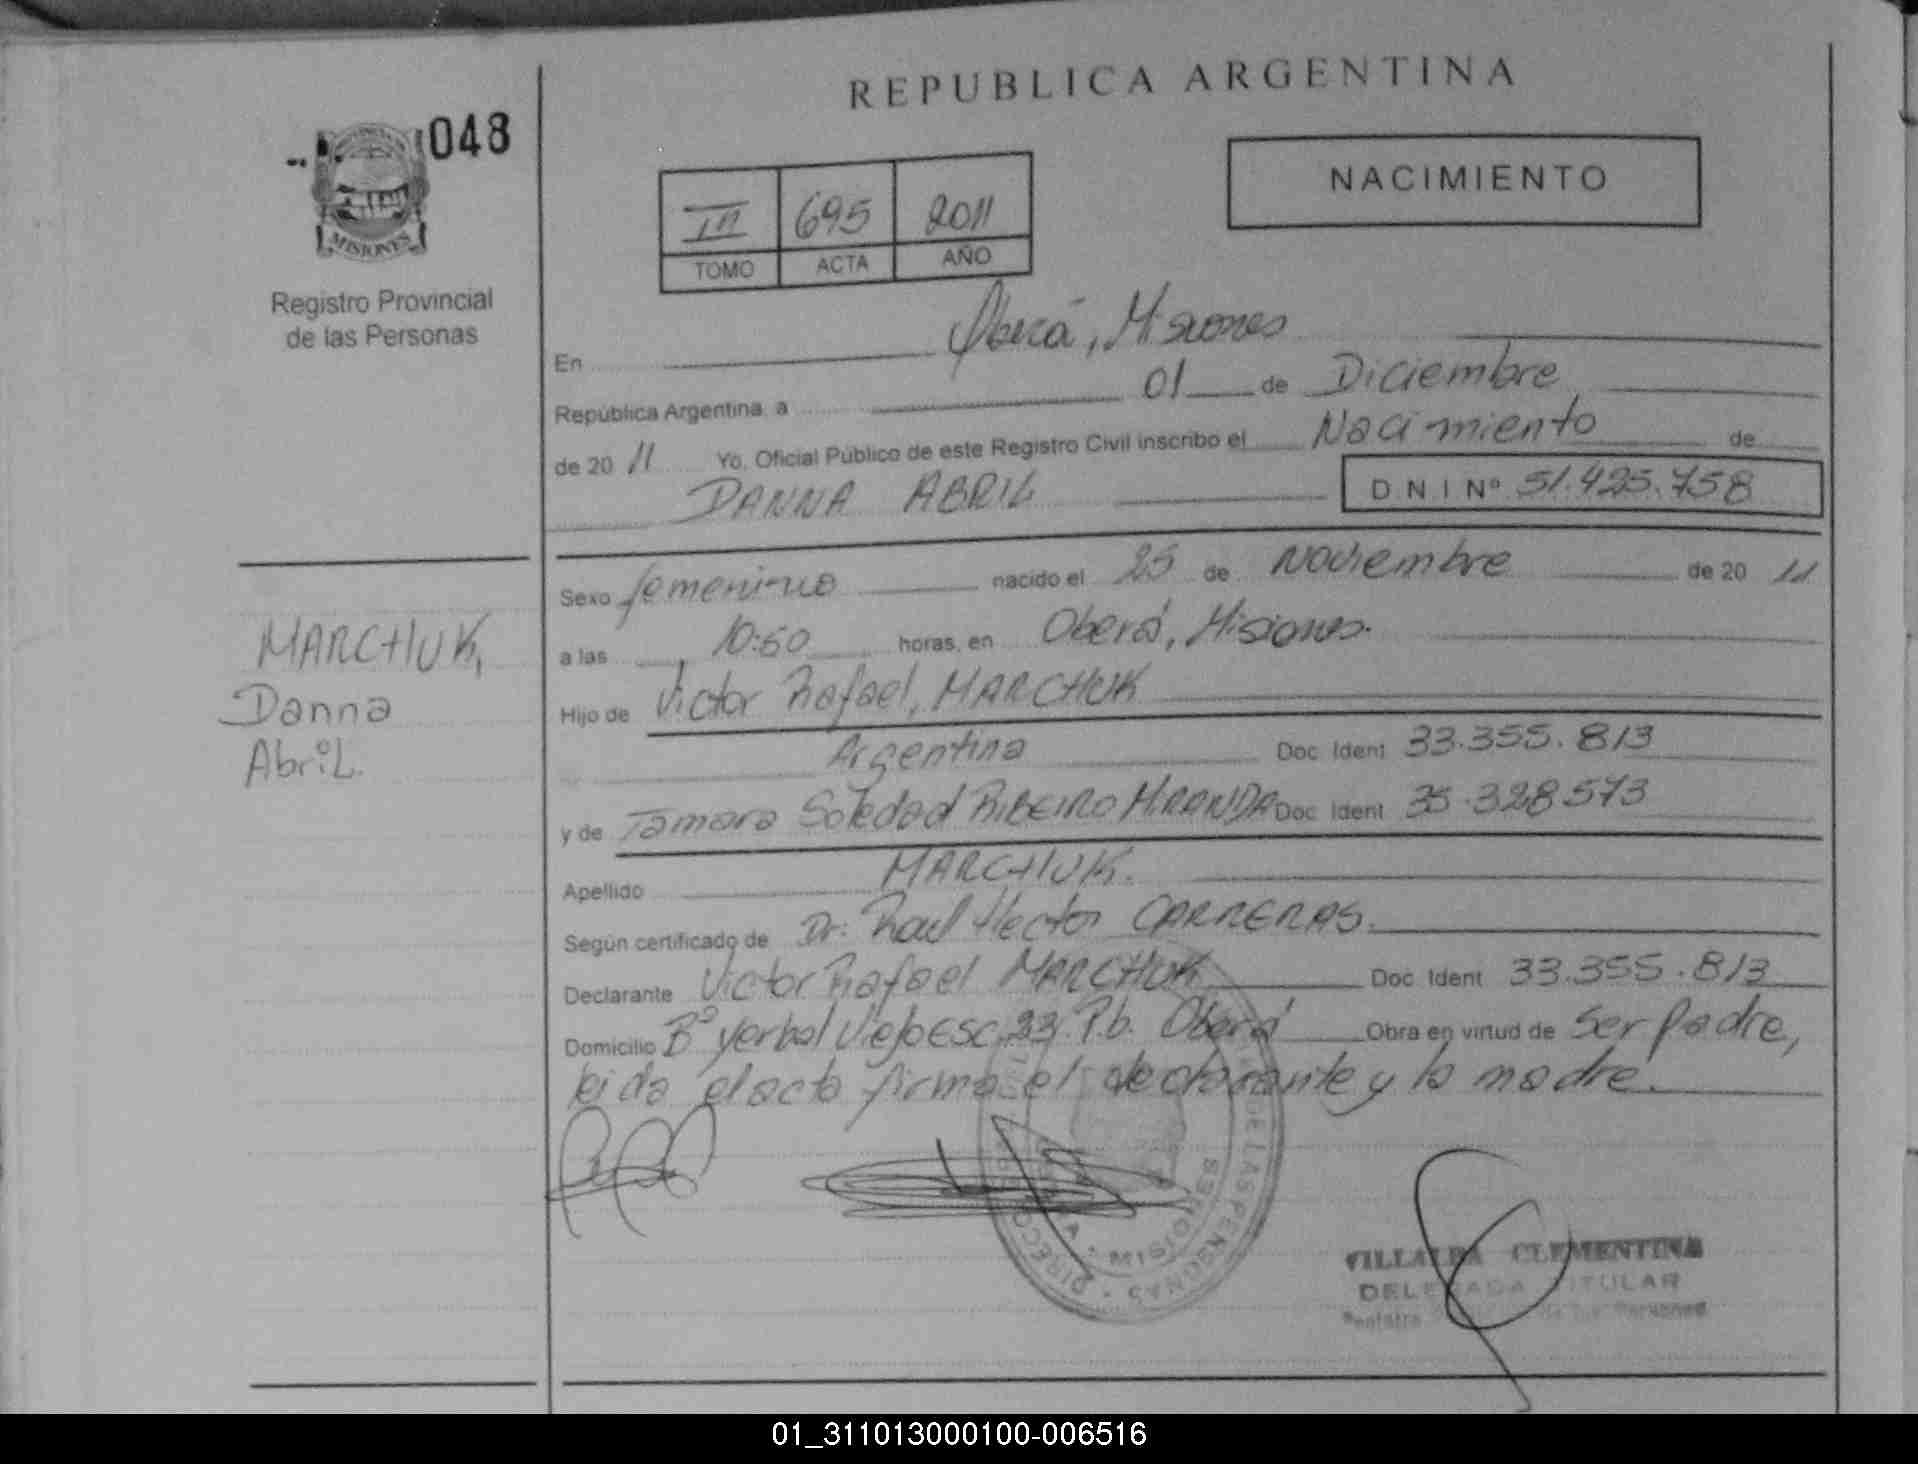 REPUBLICA ARGENTINA
048
MISIONES
Registro Provincial
de las Personas
NACIMIENTO
III 695 2011
TOMO ACTA AÑO
En Oberá, Misiones
República Argentina, a 01 de Diciembre
de 2011 Yo, Oficial Público de este Registro Civil inscribo el Nacimiento de
DANNA ABRIL DNI Nº 51.425.758
Sexo femenino nacido el 25 de Noviembre de 2011
a las 10:50 horas, en Oberá, Misiones.
Hijo de Victor Rafael, MARCHUK
Argentina Doc Ident 33.355.813
y de Tamara Soledad RIBEIRO MIRANDA Doc Ident 35.328573
Apellido MARCHUK.
Según certificado de Dr: Raul Hector CARRERAS.
Declarante Victor Rafael MARCHUK Doc Ident 33.355.813
Domicilio Bº Yerbal Viejo Esc. 23 P.b. Oberá Obra en virtud de ser padre,
leida el acta firma el declarante y la madre.
MARCHUK,
Danna
Abril.
DIRECC DE LAS PERSONAS
MISIONES
VILLALBA CLEMENTINA
DELEGADA TITULAR
01_311013000100-006516